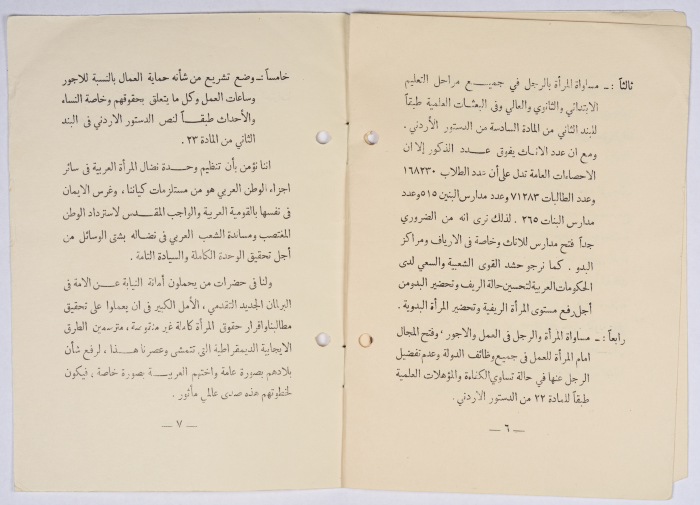 ثالثاً : ـ مساواة المرأة بالرجل في جميع مراحل التعليم
الابتدائي والثانوي والعالي وفي البعثات العلمية طبقاً
للبند الثاني من المادة السادسة من الدستور الأردني .
ومع ان عدد الاناث يفوق عدد الذكور إلا ان
الاحصاءات العامة تدل على أن عدد الطلاب ١٦٨٢٣٠
وعدد الطالبات ٧١٢٨٣ وعدد مدارس البنين ٥١٥ وعدد
مدارس البنات ٢٦٥ . لذلك نرى انه من الضروري
جداً فتح مدارس للاناث وخاصة في الارياف ومراكز
البدو . كما نرجو حشد القوى الشعبية والسعي لدى
الحكومات العربية لتحسين حالة الريف وتحضير البدو من
أجل رفع مستوى المرأة الريفية وتحضير المرأة البدوية .
رابعاً : ـ مساواة المرأة والرجل في العمل والاجور ، وفتح المجال
امام المرأة للعمل في جميع وظائف الدولة وعدم تفضيل
الرجل عنها في حالة تساوي الكفاءة والمؤهلات العلمية
طبقاً للمادة ٢٢ من الدستور الاردني .
— ٦ —
خامساً : ـ وضع تشريع من شأنه حماية العمال بالنسبة للاجور
وساعات العمل وكل ما يتعلق بحقوقهم وخاصة النساء
والأحداث طبقاً لنص الدستور الاردني في البند
الثاني من المادة ٢٣ .
اننا نؤمن بأن تنظيم وحدة نضال المرأة العربية في سائر
اجزاء الوطن العربي هو من مستلزمات كياننا ، وغرس الايمان
في نفسها بالقومية العربية والواجب المقدس لاسترداد الوطن
المغتصب ومساندة الشعب العربي في نضاله بشتى الوسائل من
أجل تحقيق الوحدة الكاملة والسيادة التامة .
ولنا في حضرات من يحملون أمانة النيابة عن الامة في
البرلمان الجديد التقدمي ، الأمل الكبير في ان يعملوا على تحقيق
مطالبنا واقرار حقوق المرأة كاملة غير منقوصة ، مترسمين الطرق
الايجابية الديمقراطية التي تتمشى وعصرنا هذا ، لرفع شأن
بلادهم بصورة عامة واختهم العربية بصورة خاصة ، فيكون
لخطوتهم هذه صدى عالمي مأثور .
— ٧ —